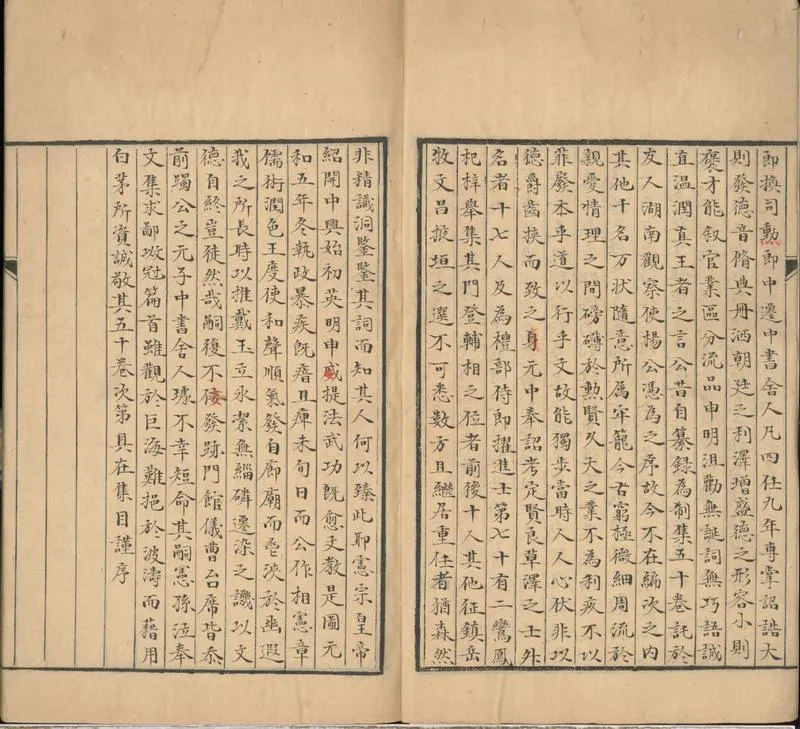 即換司勲郎中遷中書舍人凡四任九年專掌詔誥大
則發德音脩典冊洒朝廷之利澤增盛德之形容小則
褒才能叙官業區分流品申明沮勸無誕詞無巧語誠
直温潤真王者之言公昔自纂録為制集五十卷託於
友人湖南觀察使楊公憑為之序故今不在編次之内
其他千名万狀隨意所属牢籠今古窮極微細周流於
親愛情理之間磅礴於勲賢久大之業不為利疚不以
菲廢本乎道以行乎文故能獨步當時人人心伏非以
德爵齒挾而致之身元中奉詔考定賢良草澤之士升
名者十七人及為禮部侍郎擢進士第七十有二鸞鳳
杞梓舉集其門登輔相之位者前後十人其他征鎮岳
牧文昌掖垣之選不可悉數方且繼居重任者猶森然
非精識洞鑒鑒其詞而知其人何以臻此耶憲宗皇帝
紹開中興始初英明申威提法武功既愈文教是圖元
和五年冬執政暴疾既瘖且痺未旬日而公作相憲章
儒術潤色王度使和聲順氣發自廊廟而浹於幽遐
我之所長時以推戴玉立氷潔無緇磷遷染之譏以文
德自終豈徒然哉嗣復不佞發跡門館儀曹台席皆忝
前躅公之元子中書舍人璩不幸短命其嗣憲孫泣奉
文集求鄙攷冠篇首雖觀於巨海難挹於波濤而藉用
白茅所資誠敬其五十卷次第具在集目謹序